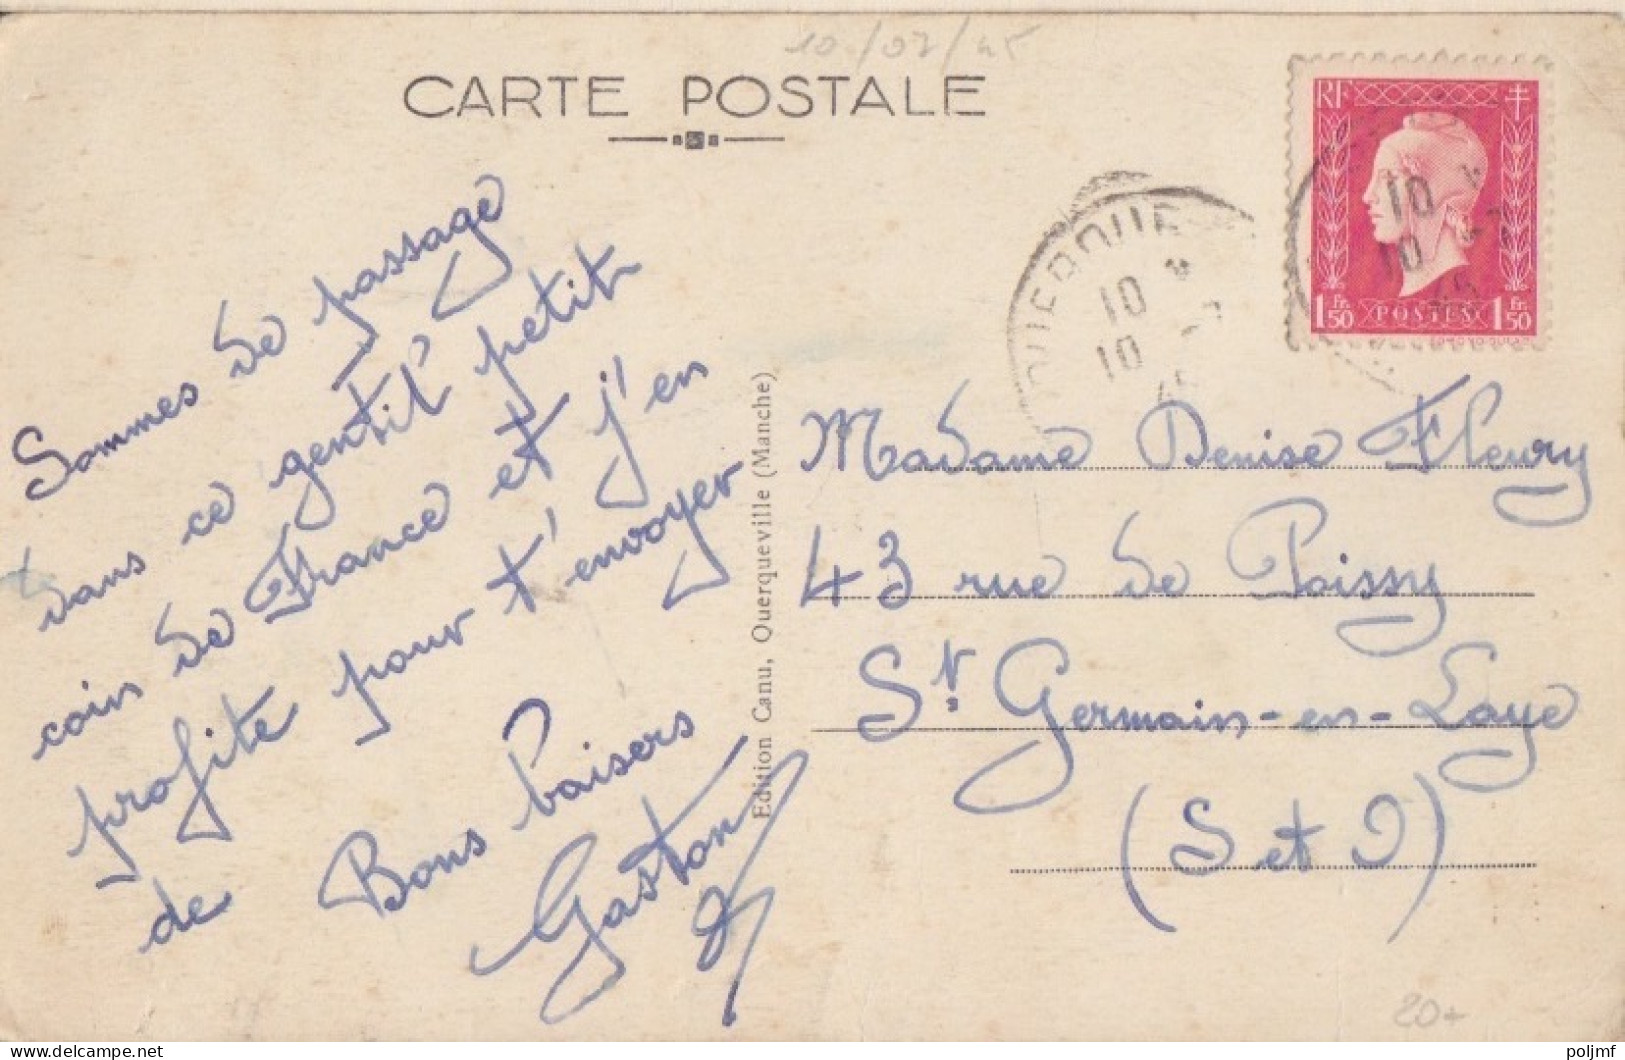 10/07/45
CARTE POSTALE
RF
1 Fr. 50 POSTES 1 Fr. 50
10
10
10
10
45
Sommes de passage
dans ce gentil petit
coin de France et j'en
profite pour t'envoyer
de Bons baisers
Gaston
Edition Canu, Querqueville (Manche)
Madame Denise Fleury
43 rue de Poissy
St. Germain-en-Laye
(S et O)
20+
Delcampe.net
poljmf